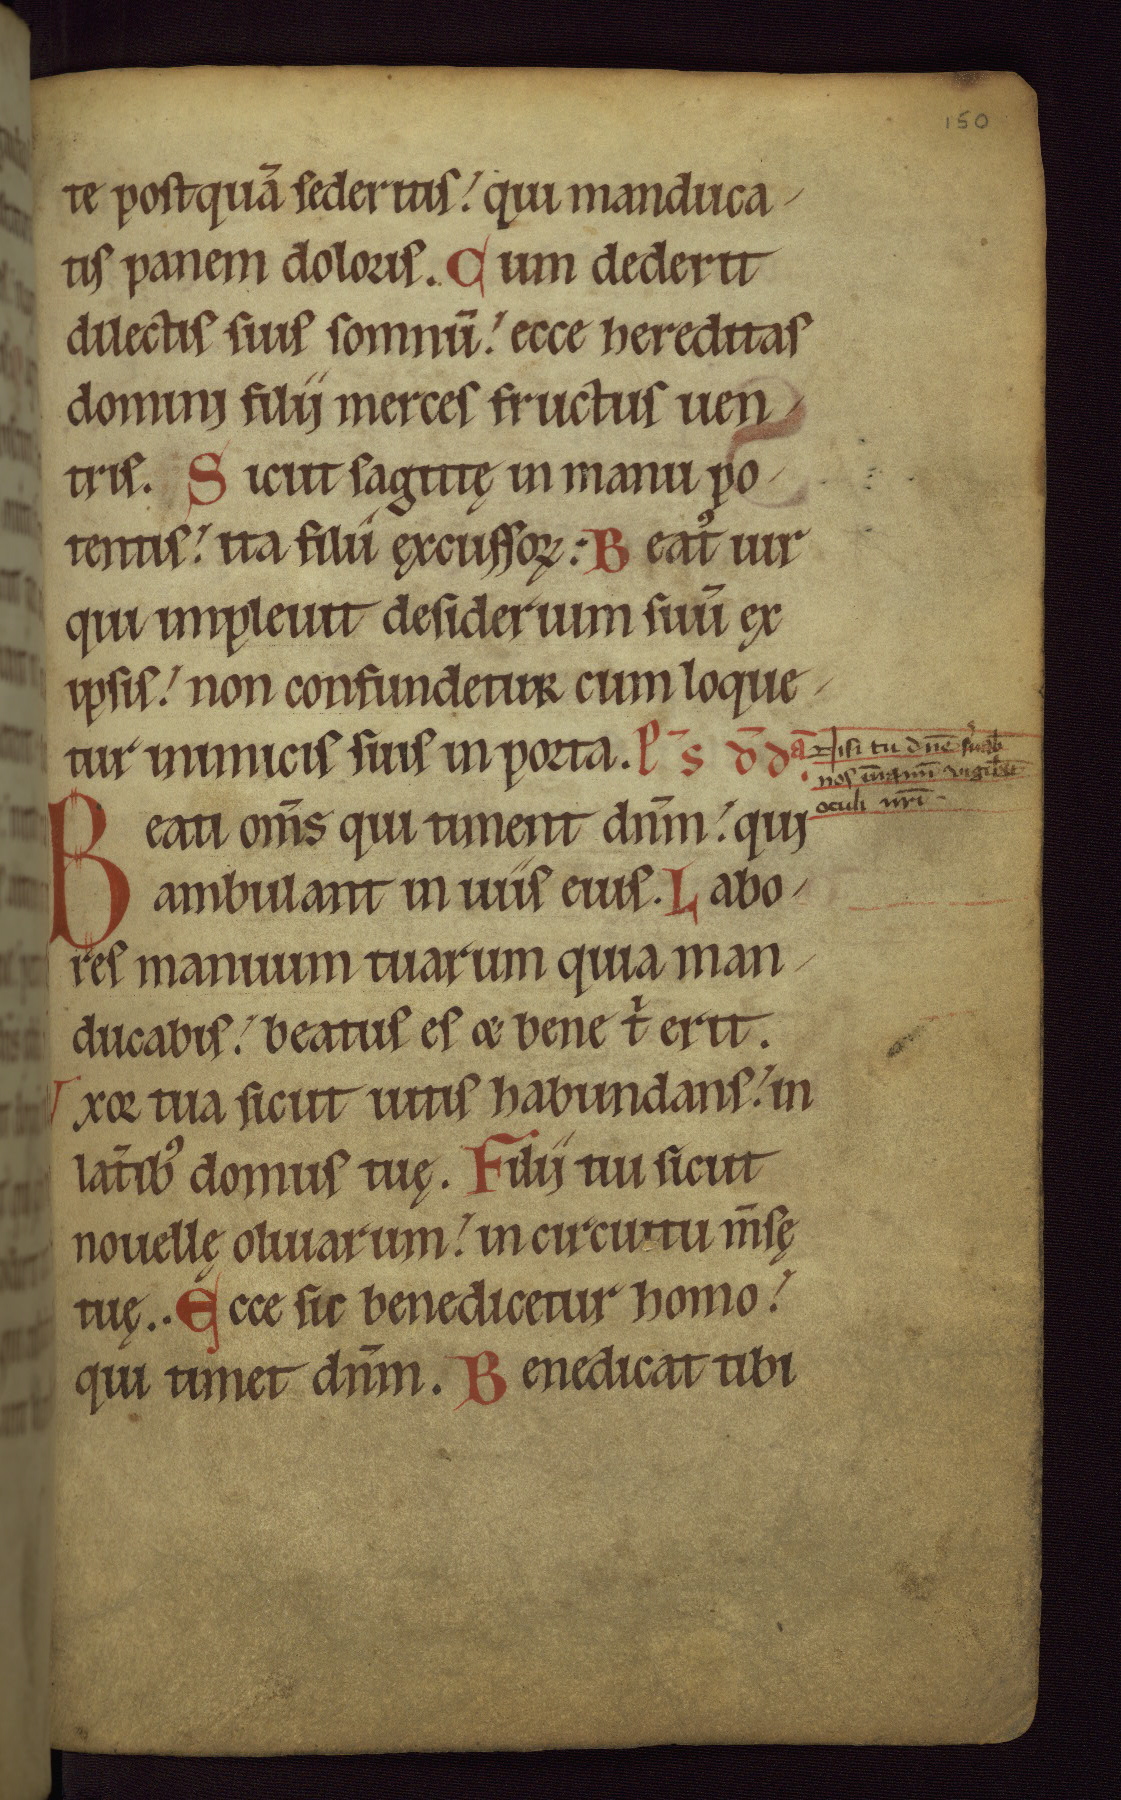 150
te postquā sederitis! qui manduca-
tis panem doloris. Cum dederit
dilectis suis somnū! ecce hereditas
domini filij merces fructus uen-
tris. Sicut sagittę in manu po-
tentis! ita filii excussoꝝ: Beatꝰ uir
qui impleuit desiderium suū ex
ipsis! non confundetur cum loque-
tur inimicis suis in porta. p̄s d̄dā.
Nisi tu dn̄e
nos uigilāt
oculi nr̄i.
Beati om̄s qui timent dn̄m! qui
ambulant in uiis eius. Labo-
res manuum tuarum quia man-
ducabis! beatus es & bene t̄ erit.
Vxor tua sicut uitis habundans! in
lat̄ibꝰ domus tuę. Filij tui sicut
nouellę oliuarum! in circuitu m̄sę
tuę. Ecce sic benedicetur homo!
qui timet dn̄m. Benedicat tibi